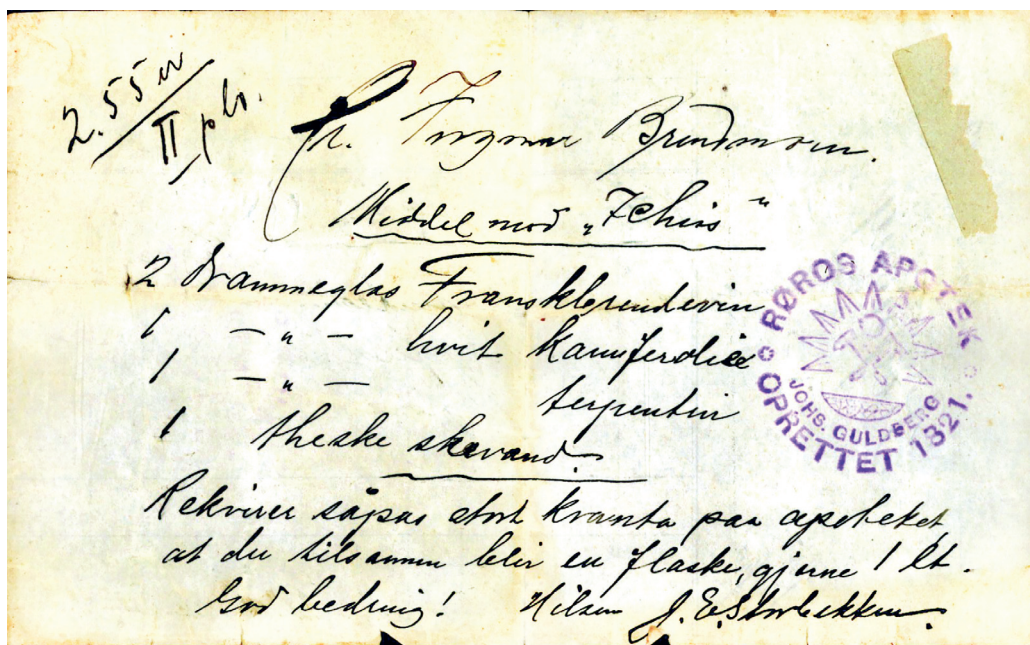 2.55 er
II pls.
Hr. Ingmar Brendmoen.
Middel mod „Ichias"
2 Drammeglas Franskbrendevin
1 — " — hvit kamferdraaber
1 — " — terpentin
1 theske skevand.
Rekvirer såpas stort kvanta paa apoteket,
at du tilsamm blir en flaske, gjerne 1 lt.
God bedring! Hilsen J. E. Storbekken.
RØROS APOTEK
JOHS. GULDBERG
OPRETTET 1821.